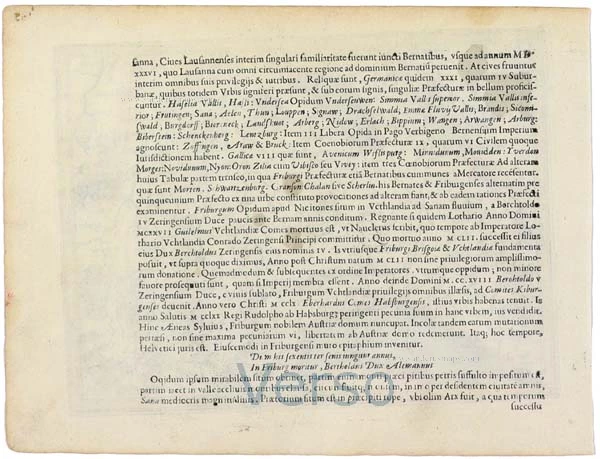 sanna, Ciues Lausannenses interim singulari familiaritate fuerunt iuncti Bernatibus, vsque ad annum MD
XXXVI, quo Lausanna cum omni circumiacente regione ad dominium Bernatiũ peruenit. At ciues fruuntur
interim omnibus suis privilegiis & iuribus. Reliquæ sunt, Germanicæ quidem XXXI, quarum IV Subur-
banæ, quibus totidem Vrbis signiferi præsunt, & sub eorum signis, singulæ Præfecturæ in bellum proficis-
cuntur. Haselia Vallis, Hasli: Vndersea Opidum Vnderseuwen: Simmia Vallis superior. Simmia Vallis infe-
rior; Frutingen; Sana; Arlen; Thun; Louppen; Signaw; Drachselwald; Emma Fluvij Vallis; Brandis; Sicum-
swald; Burgdorff; Biereneck; Landshut; Arberg; Nidow; Erlach; Bippium; Wangen; Arwangen; Arburg;
Biberstein: Schenckenberg: Lenzburg: Item III Libera Opida in Pago Verbigeno Bernensium Imperium
agnoscunt: Zoffingen, Araw & Bruck: Item Coenobiorum Præfecturæ IX, quarum VI Civilem quoque
Iurisdictionem habent. Gallicæ VIII quæ sunt, Avenicum Wiflispurg: Minnidunum, Mouldden: Yverdon
Morges: Novidunum, Nyon: Oron Zilia cum Vibisco seu Vivey: item tres Coenobiorum Præfecturæ Ad alteram
huius Tabulæ partem transeo, in qua Friburgi Præfecturæ etiã Bernatibus cummunes à Mercatore recésentur.
quæ sunt Morten. Schwartzenburg. Granson Chalon sive Scherlin. his Bernates & Friburgenses alternatim pre
quinquennium Præfecto ex una urbe constituto provocationes ad alteram siunt, & ab eadem rationes Præfecti
examinentur. Friburgum Opidum apud Nicitones situm in Vchtlandia ad Sanam fluuium, à Berchtoldo
IV Zeringensium Duce paucis ante Bernam annis conditum. Regnante si quidem Lothario Anno Domini
MCXXVII Guilelmus Vchtlandiæ Comes mortuus est, vt Naucleru scribit, quo tempore ab Imperatore Lo-
thario Vchtlandia Conrado Zeringensi Principi committitur. Quo mortuo anno M CLII. successit ei filius
eius Dux Bertholdus Zeringensis eius nominis IV. Is vtriusque Friburgi Brisgoæ & Vchtlandiæ fundamenta
posuit, vt supra quoque diximus, Anno post Christum natum M CLII non sine privilegiorum amplissimo-
rum donatione. Quemadmodum & subsequentes ex ordine Imperatores. vtrumque oppidum; non minore
fauore prosequuti sunt, quam si Imperij membra essent. Anno deinde Domini M. CC. XVIII Bertholdo V
Zeringensium Duce, è viuis sublato, Friburgum Vchtlandiæ privilegiis omnibus illæsis, ad Comites Kibur-
genses devenit. Anno vero Christi M CCLX Eberhardus Comes Habspurgensis, istius vrbis habenas tenuit. Is
anno Salutis M CCLXI Regi Rudolpho ab Habspurg peringenti pecunia suum in hanc vrbem, ius vendidit.
Hinc Æneas Syluius, Friburgum nobilem Austriæ domum nuncupat. Incolæ tandem cœtum mutationum
pertæsi, non sine maxima pecuniarum vi, libertatem ab Austriæ domo redemerunt. Itaq; hoc tempore,
Helvetici juris est. Eiuscemodi in Friburgensis muro epitaphium invenitur.
De m bis sexentis ter senis iungitur annus,
In Friburg moratur, Bertholdus Dux Alemannus
Opidum ipsum mirabili situ in montis præcipiti petris suffulto impositum est,
partim iacet in valle ac clivum montis, quo fit vt, in opere desidentem civitatem annis,
Sana mediocris magnitudinis. Prætorium situm est in præcipiti rupe, vbi olim Arx fuit, à qua temporum
successu
Verso